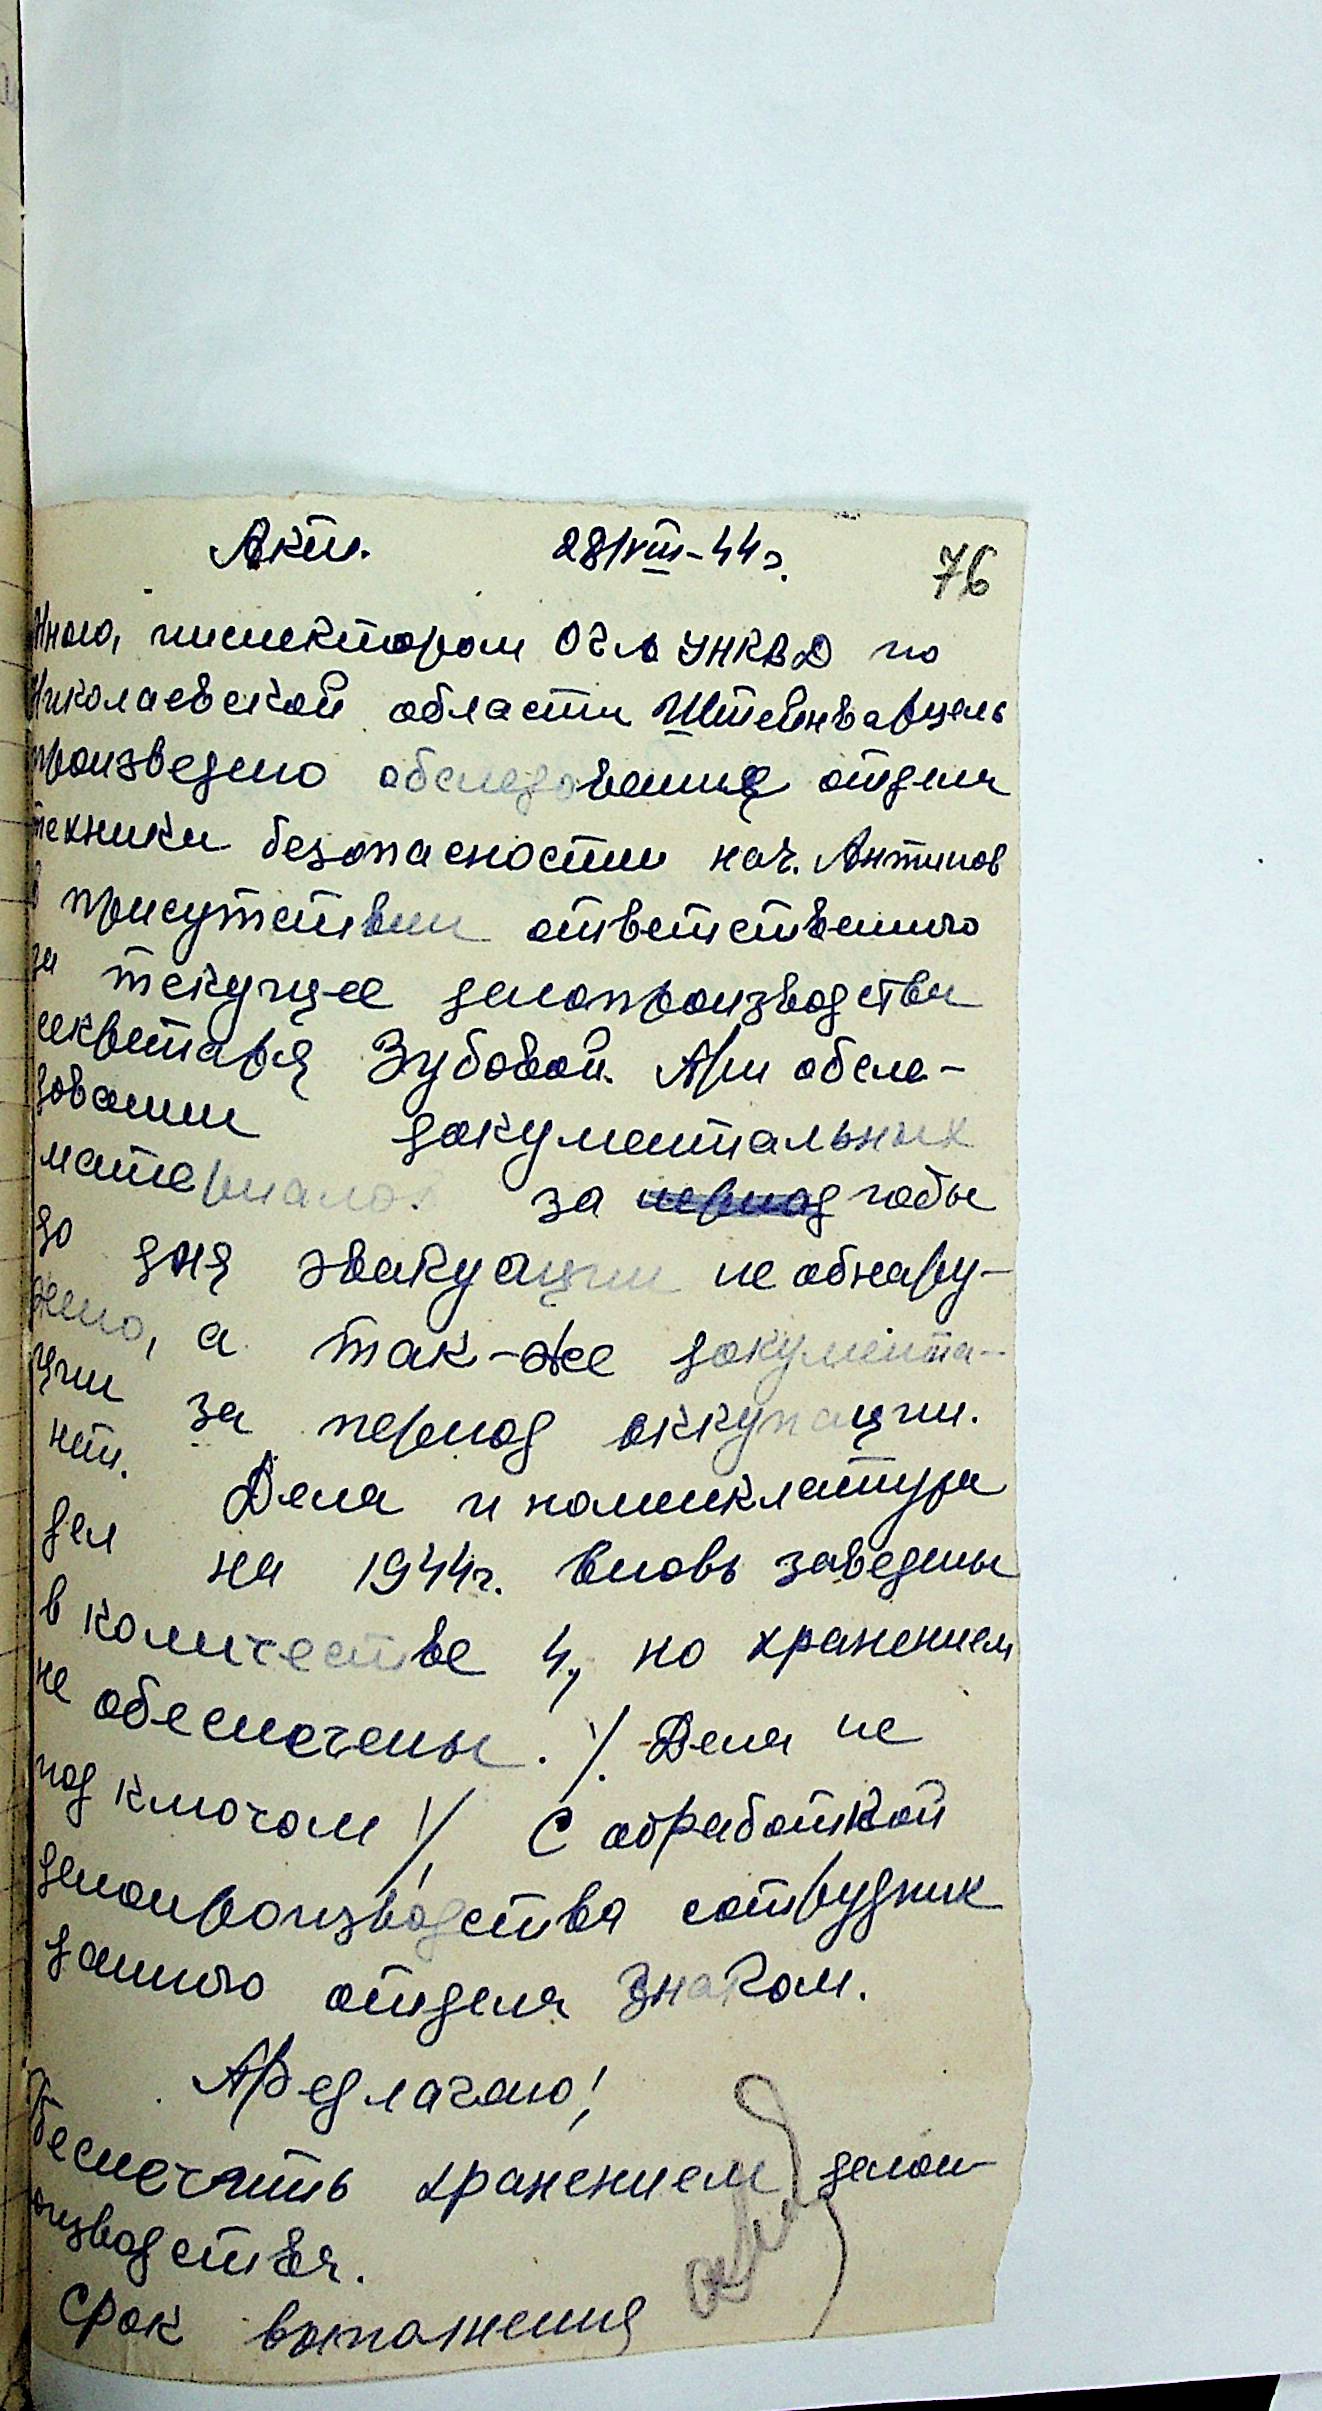 Акт. 28/VIII-44г. 76
Мною, инспектором ОГА УНКВД по
Николаевской области Штейнварцель
произведено обследование отдела
техники безопасности нач. Антипов
в присутствии ответственного
за текущее делопроизводства
секретаря Зубовой. При обсле-
довании документальных
материалов за период годы
до дня эвакуации не обнару-
жено, а так-же документа-
ции за период оккупации.
нет. Дела и номенклатура
дел на 1944г. вновь заведены
в количестве 4, но хранением
не обеспечены. /. Дела не
под ключом!/ С обработкой
делопроизводства сотрудник
данного отдела знаком.
Предлагаю!
Обеспечить хранением делоп-
роизводства.
Срок выполнения